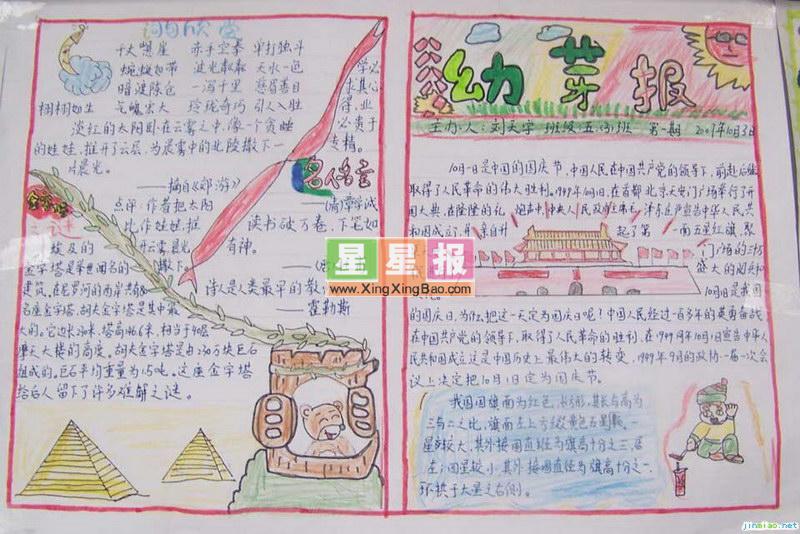 词句欣赏
千丈悬崖 赤手空拳 单打独斗
蜿蜒如带 波光粼粼 天水一色
暗渡陈仓 一泻千里 慈眉善目
栩栩如生 气魄宏大 玲珑奇巧 引人入胜
淡红的太阳卧在云雾之中,像一个贪睡
的娃娃,推开了云层,为晨雾中的北陵撒下一
片晨光。
——摘自《郊游》
点评:作者把太阳
比作娃娃,推
开云雾,晨光
撒下
学必
求其心
得,业
必贵于
专精。
名人格言
——(清)章学诚
读书破万卷,下笔如
有神。
诗人是人类最早的教
——霍勒斯
金字塔
之谜
埃及的
金字塔是举世闻名的
建筑。在尼罗河的西岸共有
名座金字塔。胡夫金字塔是其中最
大的。它边长230米,塔高146米,相当于40层
摩天大楼的高度。胡夫金字塔是由230万块巨石
组成的。巨石平均重量为2.5吨。这座金字塔
给后人留下了许多难解之谜。
幼芽报
主办人:刘天宇 班级五(3)班 第一期 2009年10月3日
10月1日是中国的国庆节,中国人民在中国共产党的领导下,前赴后继
取得了人民革命的伟大胜利。1949年10月1日,在首都北京天安门广场举行了开
国大典,在隆隆的礼炮声中,中央人民政府主席毛泽东庄严宣告中华人民共
和国成立,并亲自升起了第一面五星红旗,聚
门广场的三十万
盛大的阅兵和
10月1日是我国
的国庆日,为什么把这一天定为国庆日呢?中国人民经过一百多年的英勇奋战
在中国共产党的领导下,取得了人民革命的胜利,在1949年10月1日宣告中华人
民共和国成立,这是中国历史上最伟大的转变,1949年9月的政协一届一次会
议上决定把10月1日定为国庆节。
我国国旗面为红色,长方形,其长与高为
三与二之比,旗面左上方缀黄色五星五颗,一
星较大,其外接圆直径为旗高十分之三,居
左;四星较小,其外接圆直径为旗高十分之一,
环拱于大星之右侧。
星星报
www.XingXingBao.com
jinmiao.net